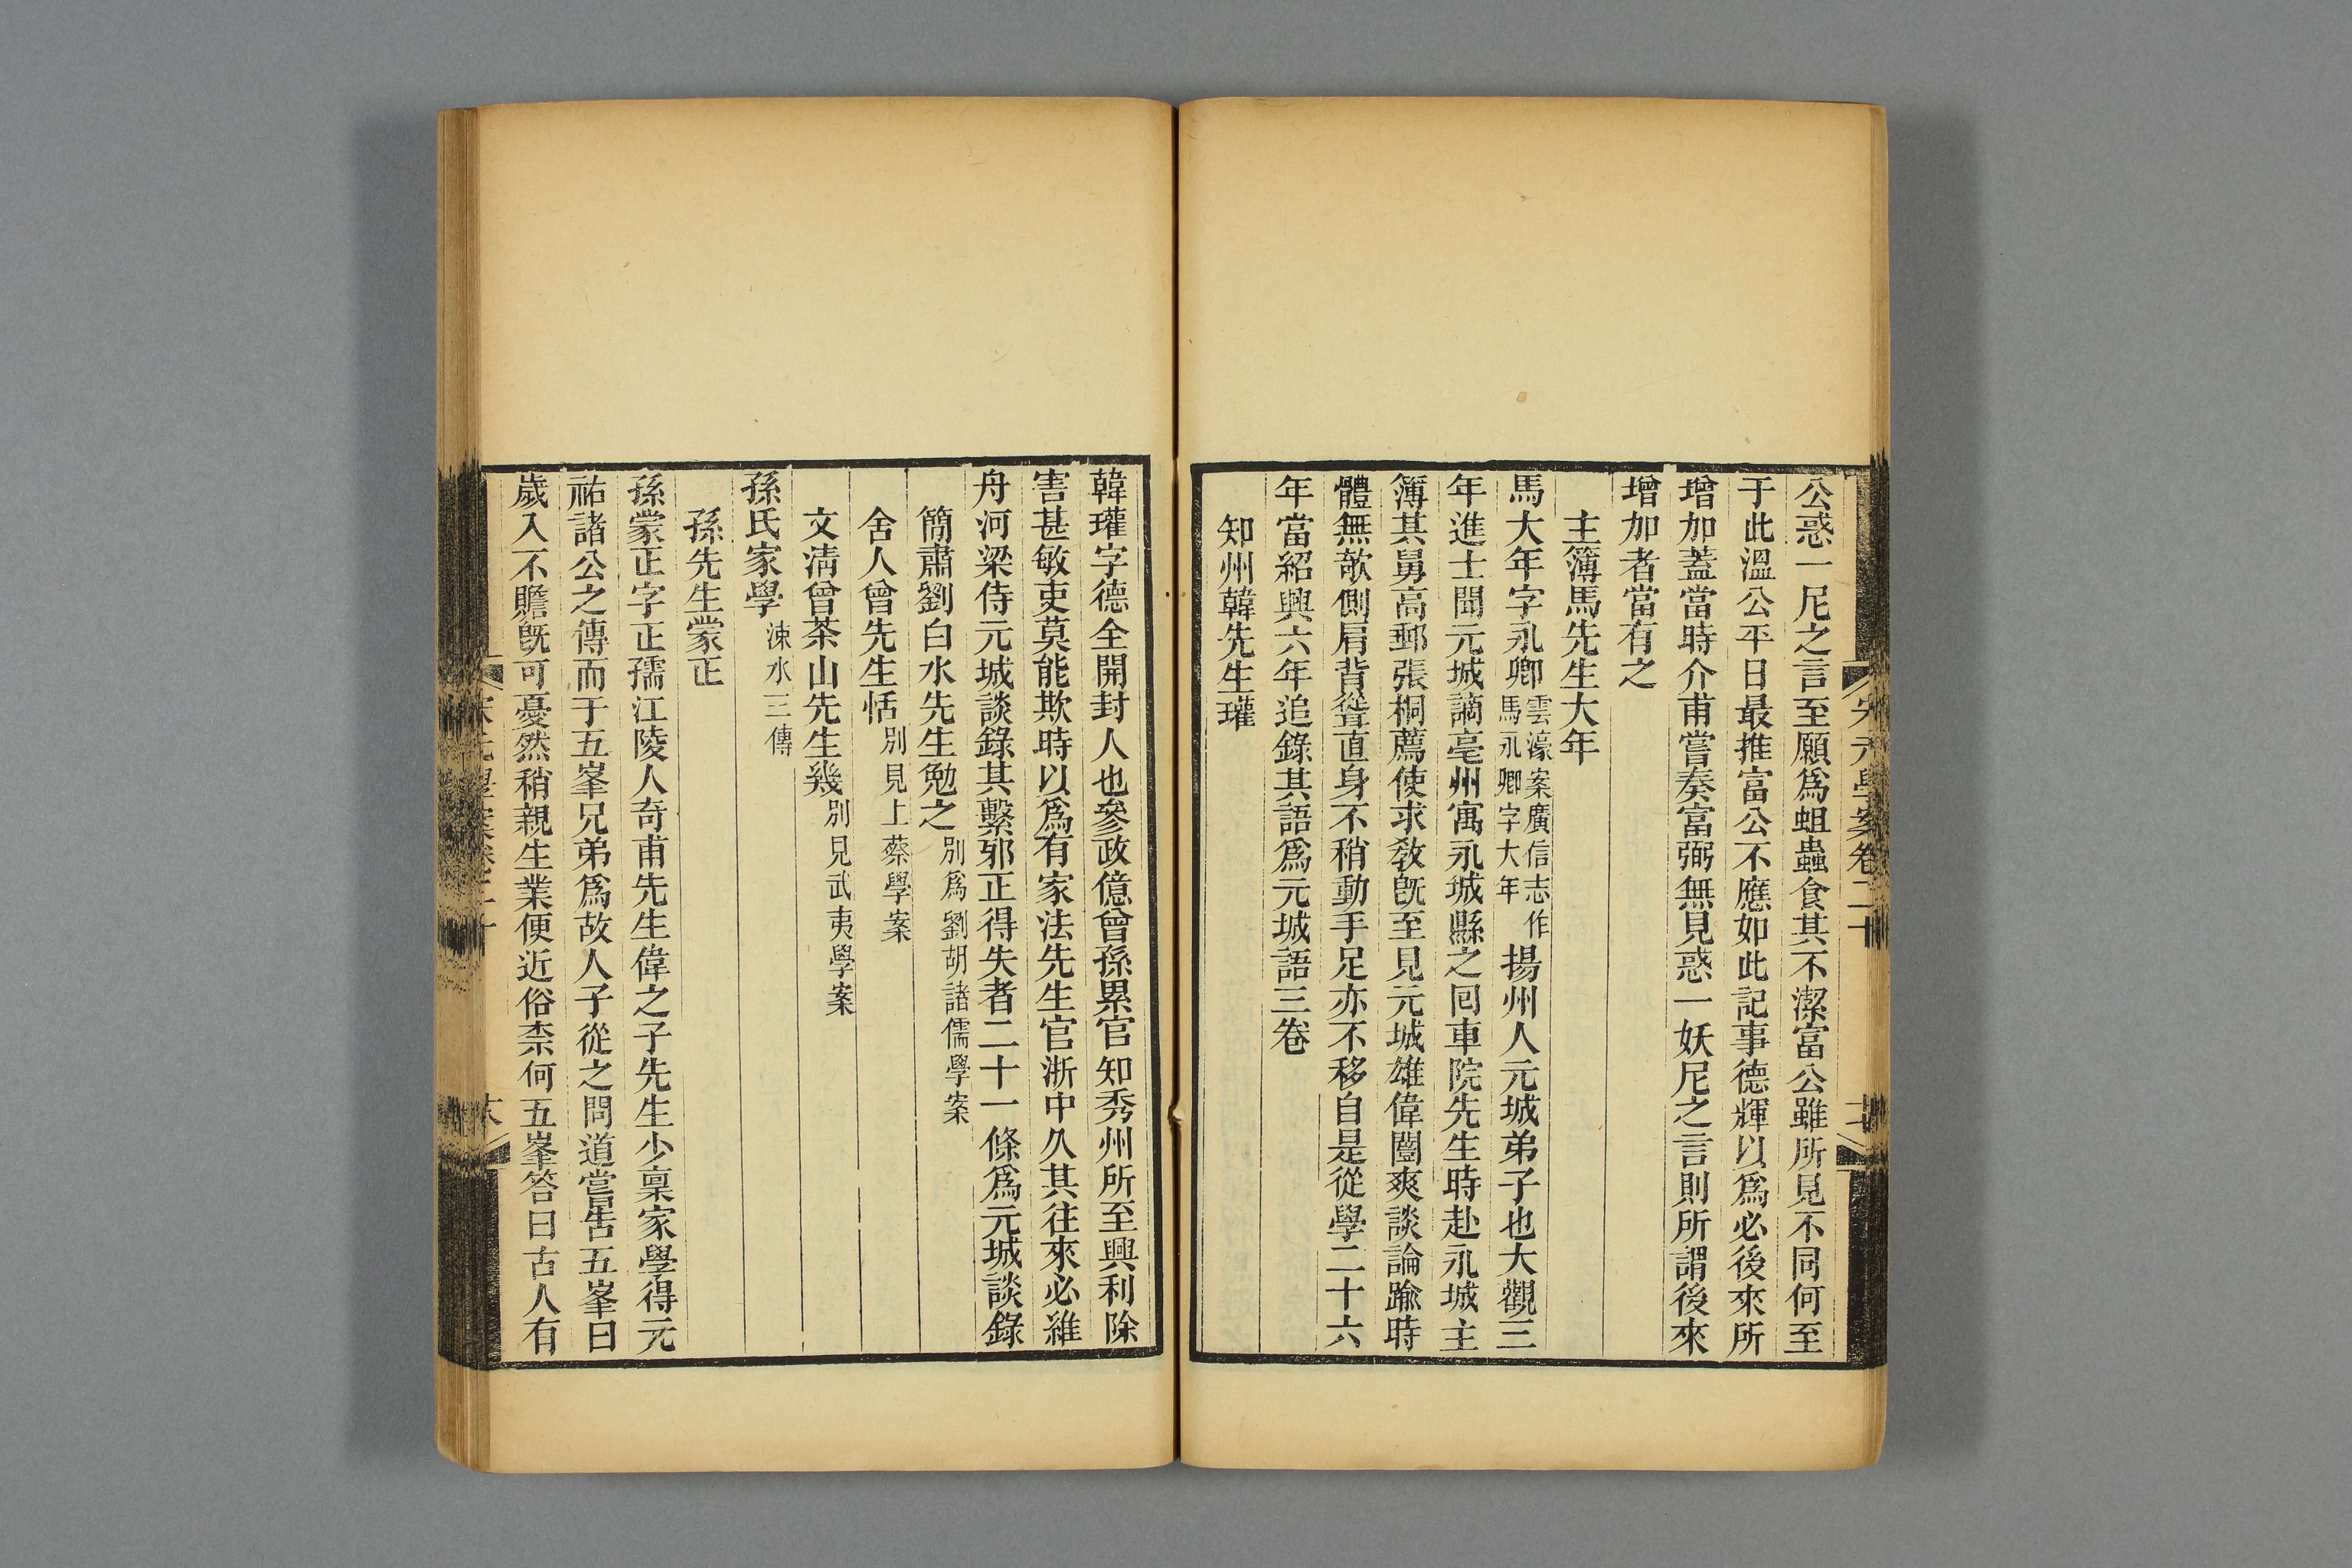 公惑一尼之言至願爲蛆蟲食其不潔富公雖所見不同何至
于此溫公平日最推富公不應如此記事德輝以爲必後來所
增加蓋當時介甫嘗奏富弼無見惑一妖尼之言則所謂後來
增加者當有之
主簿馬先生大年
馬大年字永卿雲濠案廣信志作馬永卿字大年揚州人元城弟子也大觀三
年進士聞元城謫亳州寓永城縣之回車院先生時赴永城主
簿其舅高郵張桐薦使求敎旣至見元城雄偉闓爽談論踰時
體無欹側肩背聳直身不稍動手足亦不移自是從學二十六
年當紹興六年追錄其語爲元城語三卷
知州韓先生瓘
韓瓘字德全開封人也參政億曾孫累官知秀州所至興利除
害甚敏吏莫能欺時以爲有家法先生官浙中久其往來必維
舟河梁侍元城談錄其繫邪正得失者二十一條爲元城談錄
簡肅劉白水先生勉之別爲劉胡諸儒學案
舍人曾先生恬別見上蔡學案
文淸曾茶山先生幾別見武夷學案
孫氏家學涑水三傳
孫先生蒙正
孫蒙正字正孺江陵人奇甫先生偉之子先生少稟家學得元
祐諸公之傳而于五峯兄弟爲故人子從之問道嘗告五峯曰
歲入不贍旣可憂然稍親生業便近俗柰何五峯答曰古人有